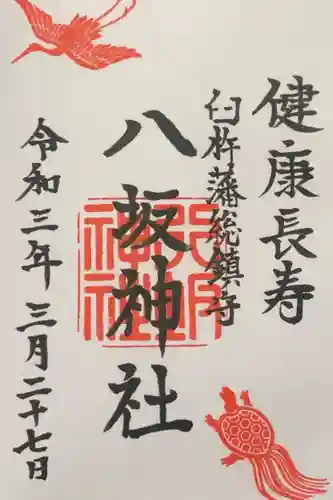 健康長寿
臼杵藩総鎮守
八坂神社
令和三年 三月二十七日